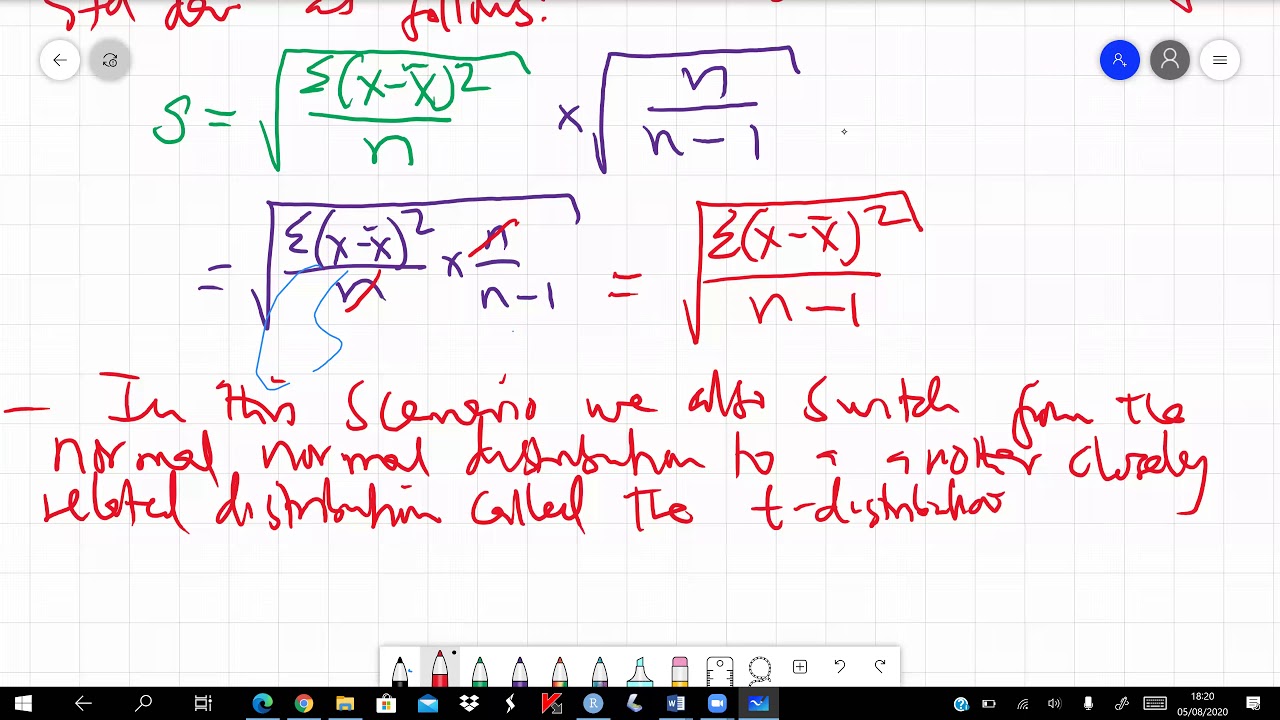 Std dev as follows:
S = √(Σ(x-x̄)²/n) × √(n/(n-1))
= √(Σ(x-x̄)²/n × n/(n-1)) = √(Σ(x-x̄)²/(n-1))
— In this scenario we also switch from the
normal normal distribution to a another closely
related distribution called the t-distribution
18:20
05/08/2020